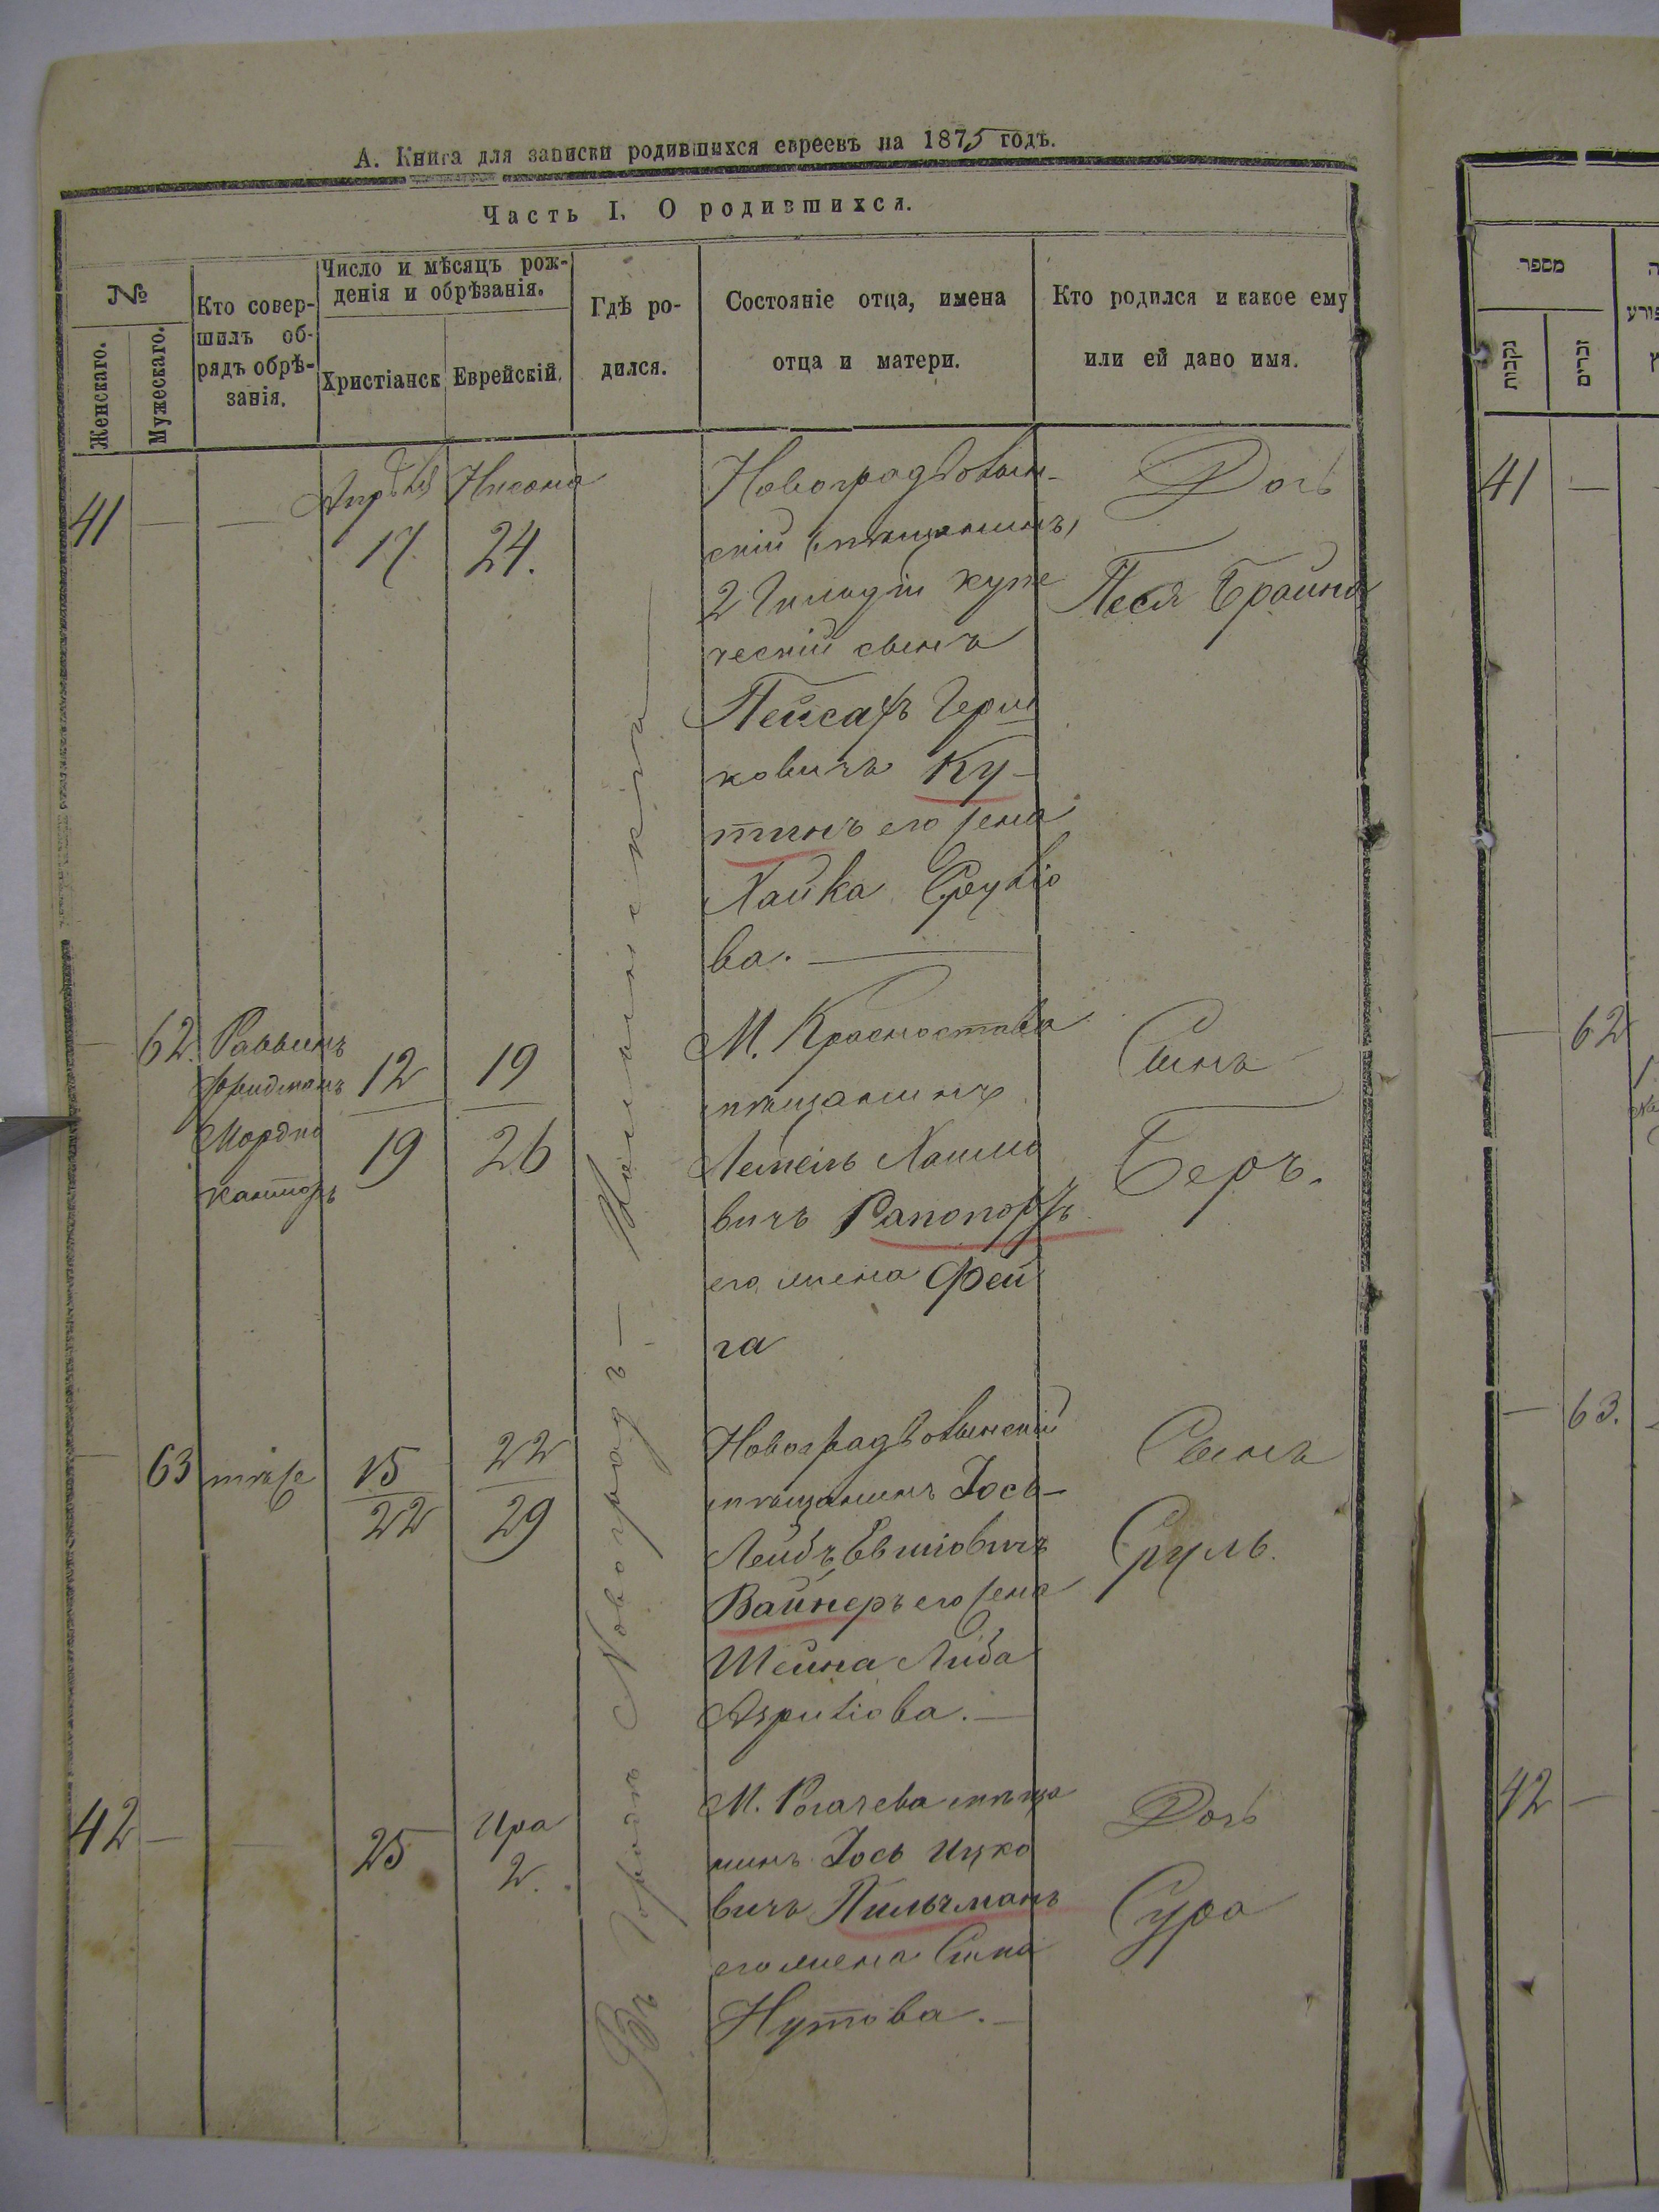 А. Книга для записки родившихся евреевъ на 1875 годъ.
Часть I. О родившихся.
№
Женскаго.
Мужескаго.
Кто совер-
шилъ об-
рядъ обрѣ-
занія.
Число и мѣсяцъ рож-
денія и обрѣзанія.
Христіанск
Еврейскій.
Гдѣ ро-
дился.
Состояніе отца, имена
отца и матери.
Кто родился и какое ему
или ей дано имя.
Въ Городѣ Новоградъ-Волынскѣ
41 — —
Апрѣля
17.
Нисона
24.
Новоградволын-
скій мѣщанинъ,
2 Гильдіи купе
ческій сынъ
Пейсахъ Герш
ковичъ Ку-
тинъ его жена
Хайка Срулiо
ва.
Дочь
Песя Брайна
— 62.
Раввинъ
Фридманъ
Мордко
Канторъ
12
19
19
26
М. Красностава
мѣщанинъ
Лемель Хаимо
вичъ Рапопортъ
его жена Фей
га
Сынъ
Беръ.
— 63
тѣже
15
22
22
29
Новоградволынскій
мѣщанинъ Іось-
Лейбъ
Вайнеръ его жена
Шейна Либа
Азриліова.
Сынъ
Сруль.
42 — —
25
Ира
2.
М. Рогачева мѣща
нинъ Іось Ицко
вичъ Пильчманъ
его жена
Нутова.
Дочь
Сура
מספר
נקבות
זכרים
41 —
— 62
— 63.
42 —